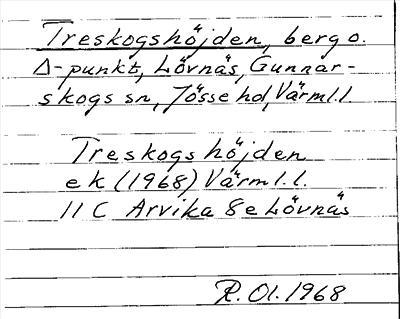 Treskogshöjden, berg o.
Δ-punkt, Lövnäs, Gunnar-
skogs sn, Jösse hd, Värml.l.
Treskogshöjden
ek (1968) Värml.l.
11 C Arvika 8e Lövnäs
R. Ol. 1968